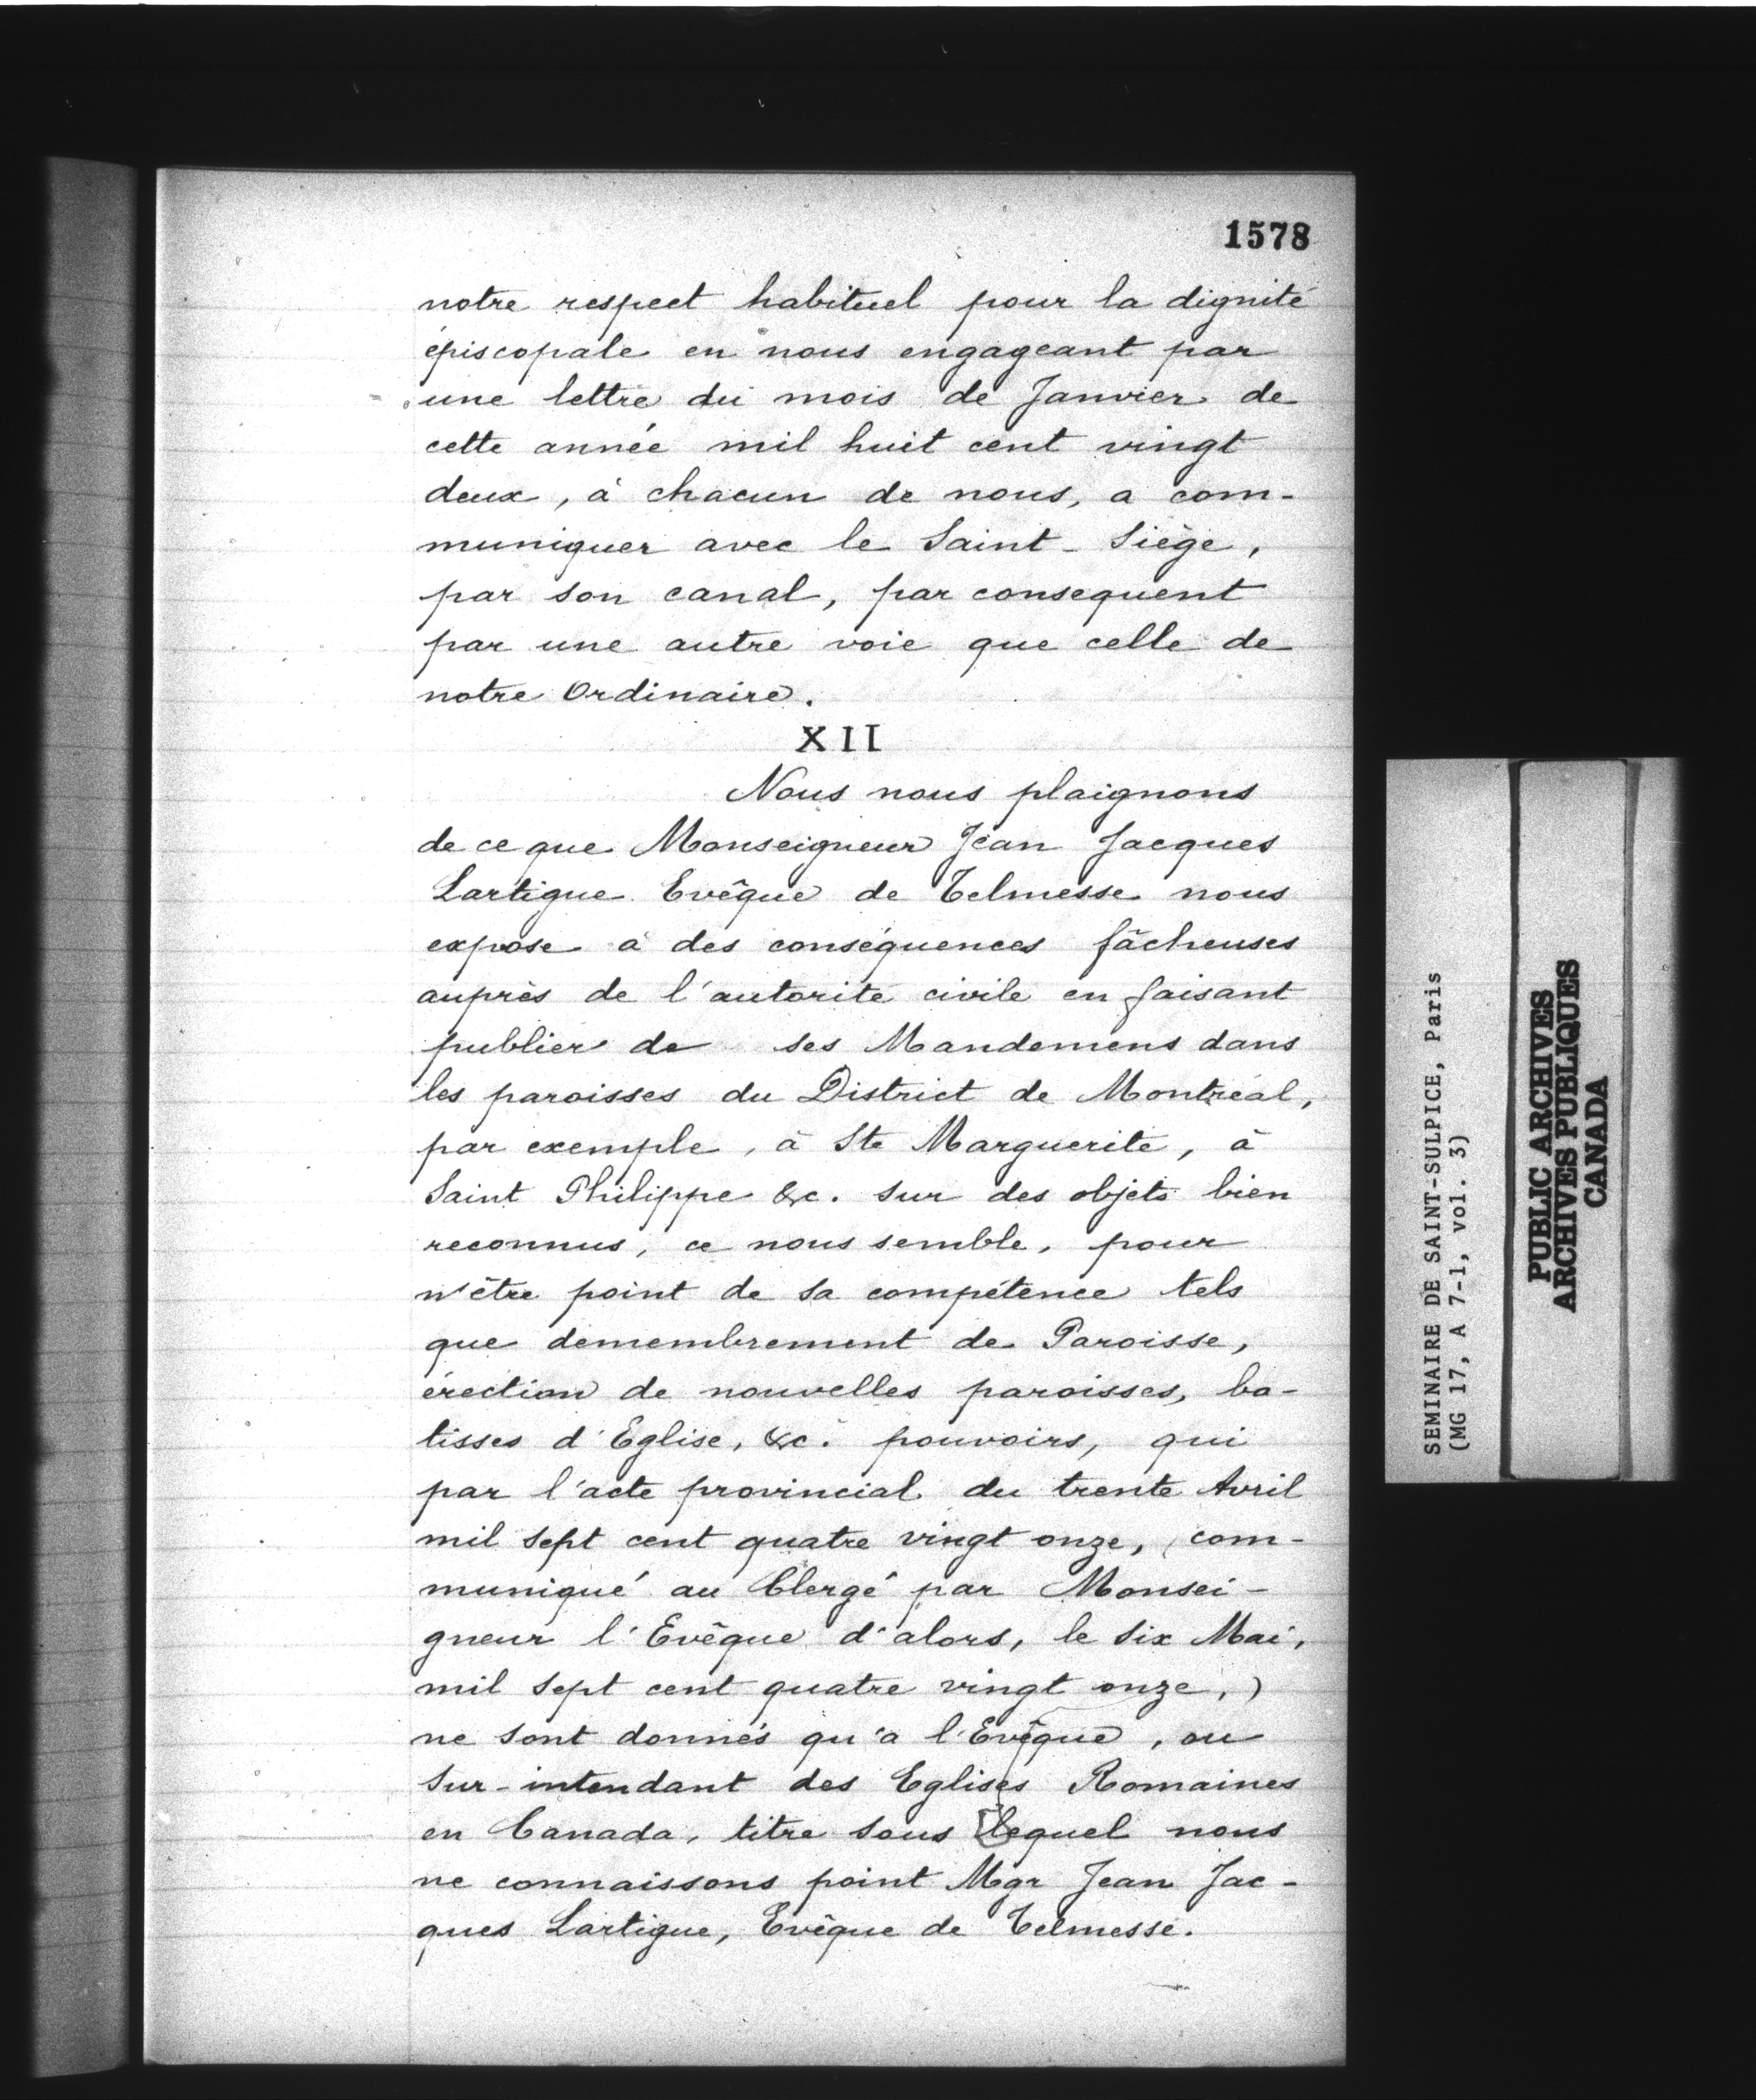 1578
notre respect habituel pour la dignité
épiscopale en nous engageant par
une lettre du mois de Janvier de
cette année mil huit cent vingt
deux, à chacun de nous, a com-
muniquer avec le Saint-Siège,
par son canal, par consequent
par une autre voie que celle de
notre Ordinaire.
XII
Nous nous plaignons
de ce que Monseigneur Jean Jacques
Lartigue Evêque de Telmesse nous
expose à des conséquences fâcheuses
auprès de l'autorité civile en faisant
publier de ses Mandemens dans
les paroisses du District de Montréal,
par exemple, à Ste Marguerite, à
Saint Philippe &c. sur des objets bien
reconnus, ce nous semble, pour
n'être point de sa compétence tels
que demembrement de Paroisse,
érection de nouvelles paroisses, ba-
tisses d'Eglise, &c. pouvoirs, qui
par l'acte provincial du trente Avril
mil sept cent quatre vingt onze, (com-
muniqué au Clergé par Monsei-
gneur l'Evêque d'alors, le six Mai,
mil sept cent quatre vingt onze,)
ne sont donnés qu'a l'Evêque, ou
Sur-intendant des Eglises Romaines
en Canada, titre sous lequel nous
ne connaissons point Mgr Jean Jac-
ques Lartigue, Evêque de Telmesse.
SEMINAIRE DE SAINT-SULPICE, Paris
(MG 17, A 7-1, vol. 3)
PUBLIC ARCHIVES
ARCHIVES PUBLIQUES
CANADA